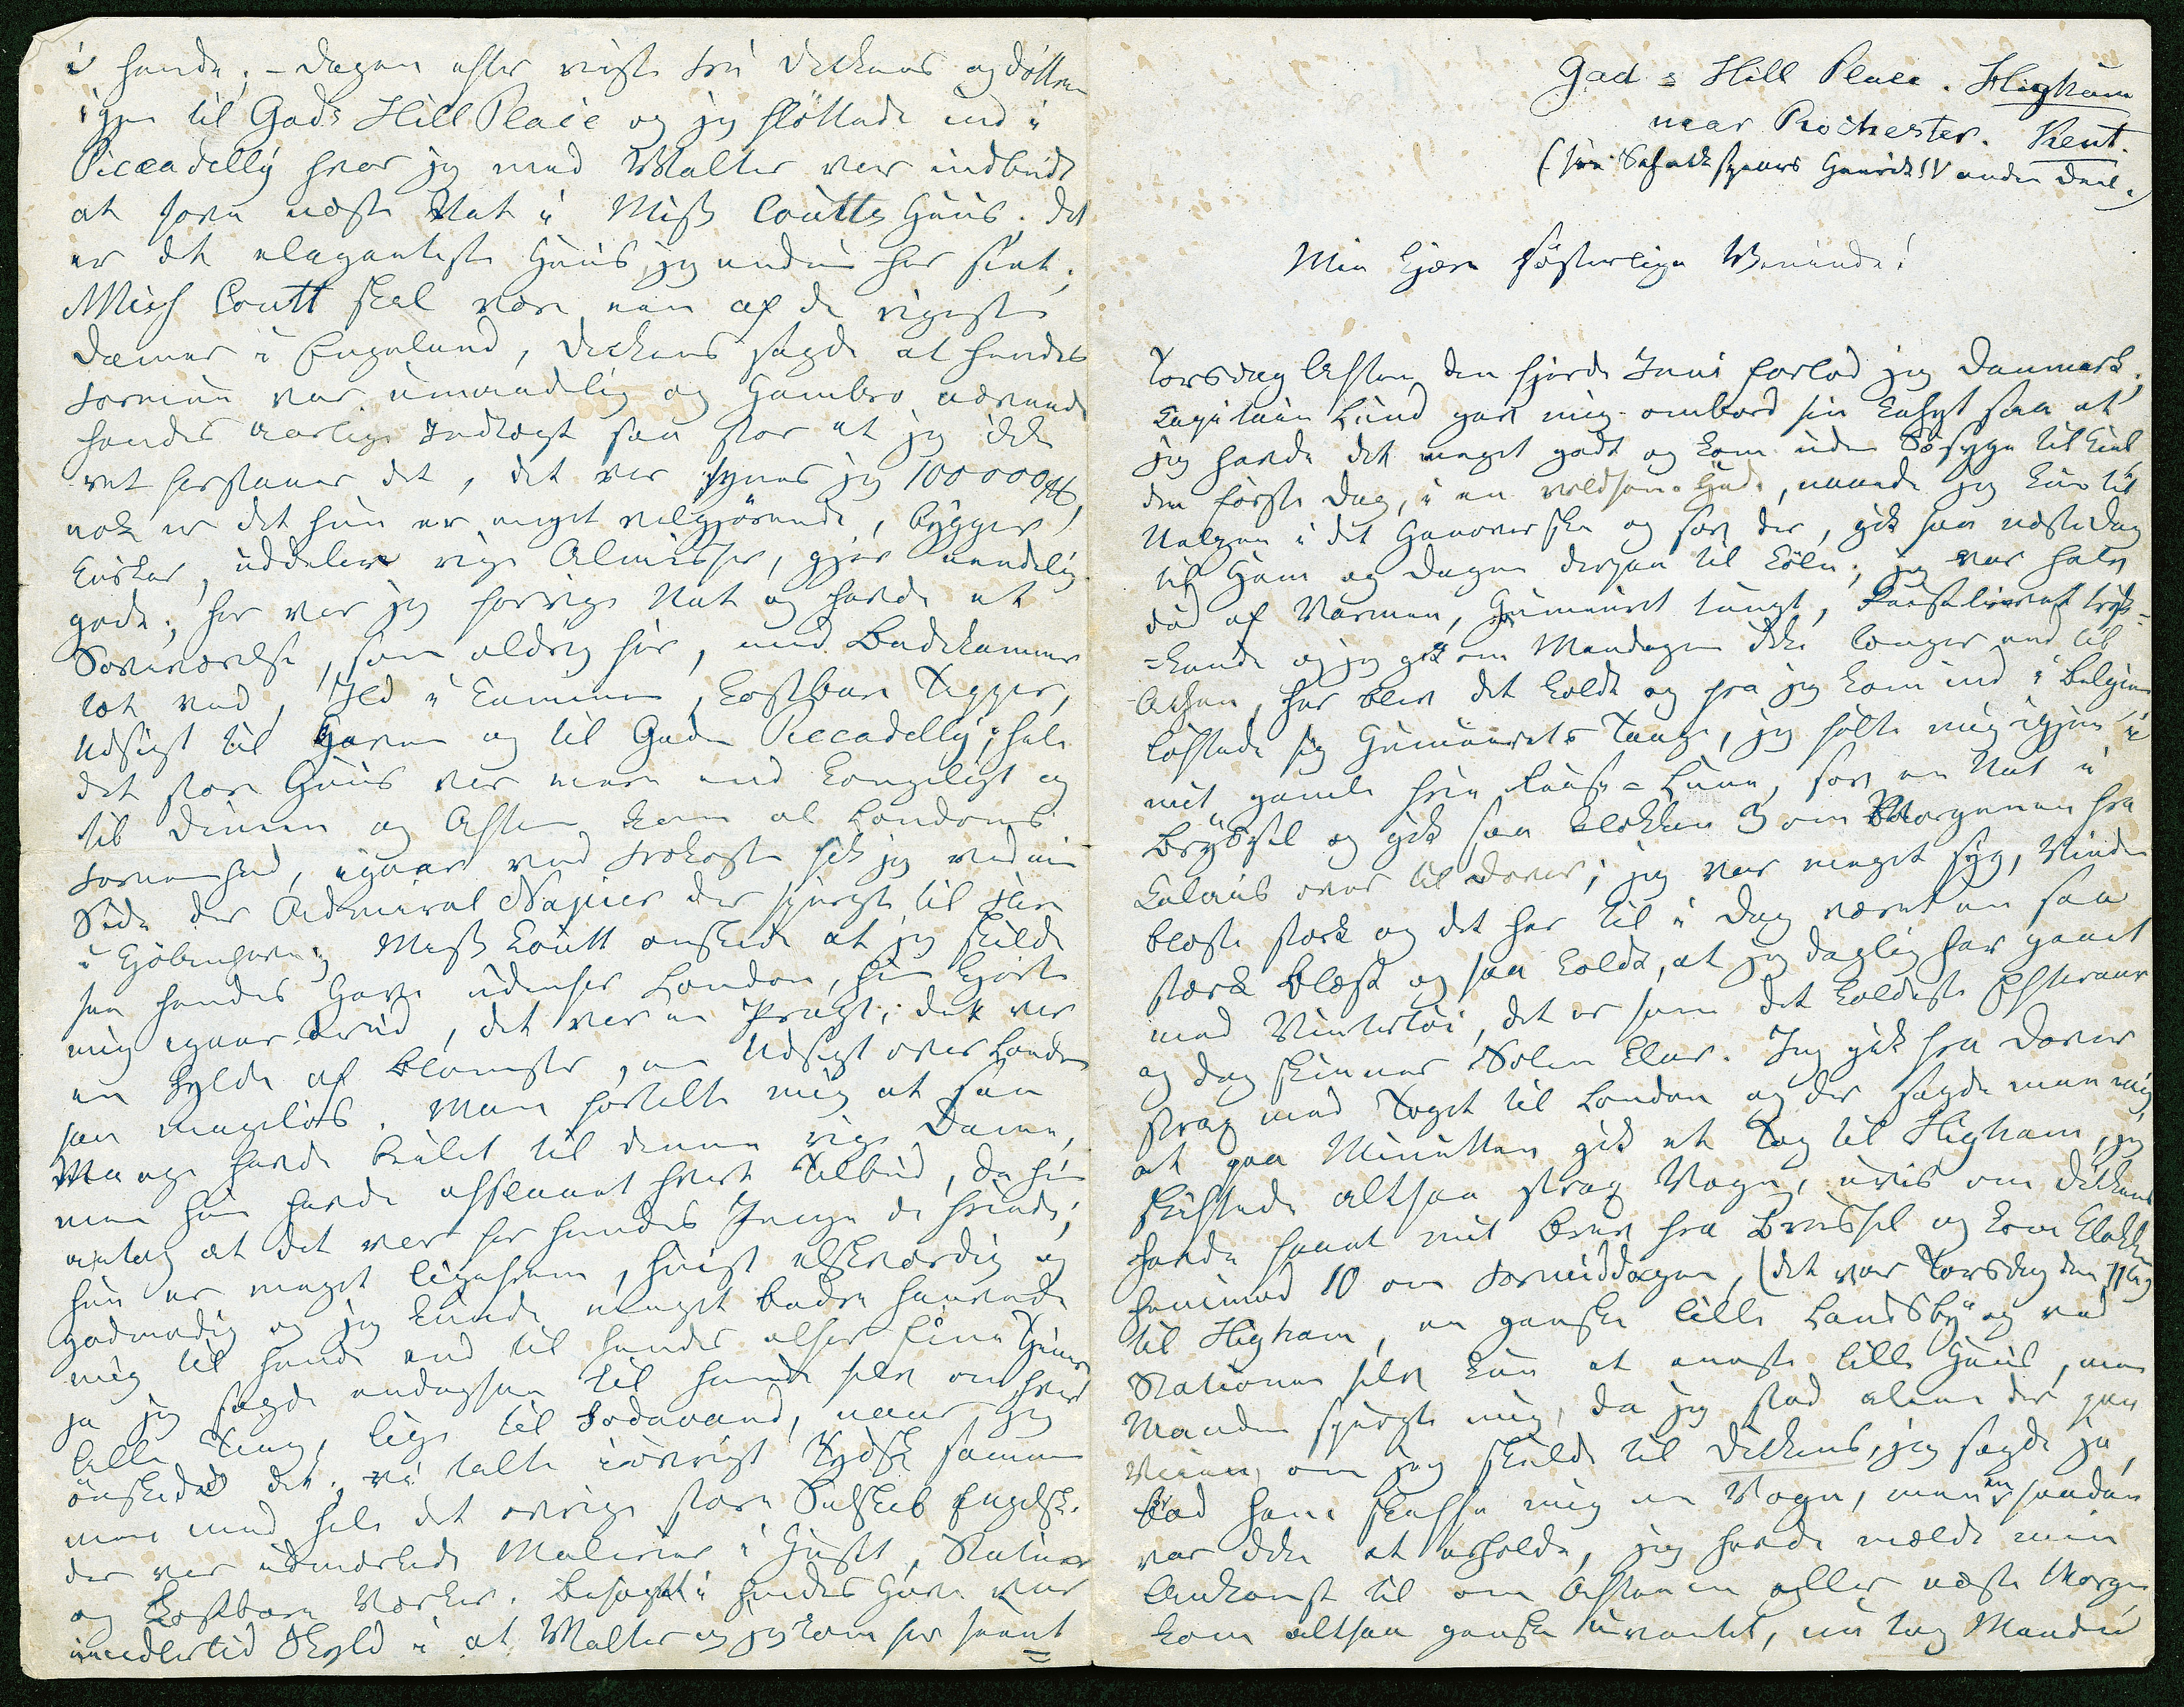 i hende. – Dagen efter reiste Fru Dickens og Døttre
igjen til Gads Hill Place og jeg flöttede ind i
Piccadelly hvor jeg med Walter var indbudt
at sove næste Nat i Miss Coutts Huus. det
er det eleganteste Huus jeg endnu har seet;
Miss Coutt skal være een af de rigeste
Damer i Engeland, Dickens sagde at hendes
Formue var umaadelig og Hambro nævnede
hendes aarlige Indtægt saa stor at jeg ikke
ret forstaaer det, det var synes jeg 100000
nok er det hun er meget velgjörende, bygger
Kirker, uddeler rige Almisser, gjör uendelig
godt; her var jeg forrige Nat og havde et
Soveværelse, som aldrig før, med Badekammer
tæt ved, Ild i Kaminen, kostbare Tepper,
Udsigt til Haven og til Gaden Piccadelly; hele
det store Huus var mere end kongeligt og
til Dineen og Aften kom al Londons
Fornemhed, igaar ved Frokosten fik jeg ved min
Side der Admiral Napier der spurgte til Fire
i Kjöbenhavn; Miss Coutt ønskede at jeg skulde
see hendes Have udenfor London, hun kjørte
mig igaar derud, det var en Pragt; det var
en Fylde af Blomster, en Udsigt over London
saa mageløs. Man fortalte mig at saa
Mange havde beilet til denne rige Dame,
men hun havde afslaaet hvert Tilbud, da hun
antog at det var for hendes Penge de friede;
hun er meget ligefrem, høist elskværdig og
godmodig og jeg kunde meget bedre henvende
mig til hende end til hendes altfor fine Tjenere
ja jeg sagde endogsaa til hende selv om hver
lille Ting, lige til Sodavand, naar jeg
ønskede det; vi talte iøvrigt Tydsk sammen
men med hele det øvrige store Selskab Engelsk.
der var udmærkede Malerier i Huset, Statuer
og kostbare Værker. Besøget i hendes Have var
imidlertid Skyld i at Walter og jeg kom for seent
=
Gad's Hill Place. Higham
near Rochester. Kent.
(see Schakspears Henrik IV anden Deel.)
Min kjære søsterlige Veninde!
Torsdag Aften den fjerde Juni forlod jeg Danmark,
Capitain Lund gav mig ombord sin Kahyt saa at
jeg havde det meget godt og kom uden Søsyge til Kiel
den første Dag, i en voldsom Hede, naaede jeg kun til
Uelzen i det Hanoverske og sov der, gik saa næste Dag
til Ham og Dagen derpaa til Cöln; jeg var halv
död af Varmen, Humeuret tungt, Reiselivet tryk-
=kende og jeg gik om Mandagen ikke længer end til
Achen, her blev det koldt og fra jeg kom ind i Belgien
løftede sig Humeurets Tunge, jeg følte mig igjen i
mit gamle frie Reise=Lune, sov en Nat i
Bryssel og gik saa Klokken 3 om Morgenen fra
Calais over til Dover; jeg var meget syg, Vinden
blæste stærk og det har til i Dag været en saa
stærk Blæst og saa koldt, at jeg daglig har gaaet
med Vintertøi, det er som det koldeste Efteraar
og dog skinner Solen klar. Jeg gik fra Dover
strax med Toget til London og der sagde man mig,
at paa Minutten gik et Tog til Higham, jeg
skiftede altsaa strax Vogn, uvis om Dickens
havde faaet mit Brev fra Bryssel og kom Klokken
henimod 10 om Formiddagen, (det var Torsdag den 11te)
til Higham, en ganske lille Landsby og ved
Stationen selv kun et eneste lille Huus, men
Manden spurgte mig, da jeg stod alene der paa
Veien, om jeg skulde til Dickens, jeg sagde ja,
bad ham skaffe mig en Vogn, men en saadan
var ikke at erholde, jeg havde meldt min
Ankomst til om Aftenen eller næste Morgen
kom altsaa ganske uventet, nu tog Manden